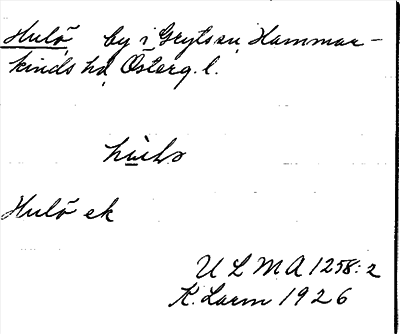 Hulö by i Gryts sn, Hammar-
kinds hd, Österg. l.
Hulö ek
U L M A 1258:2
K. Larm 1926